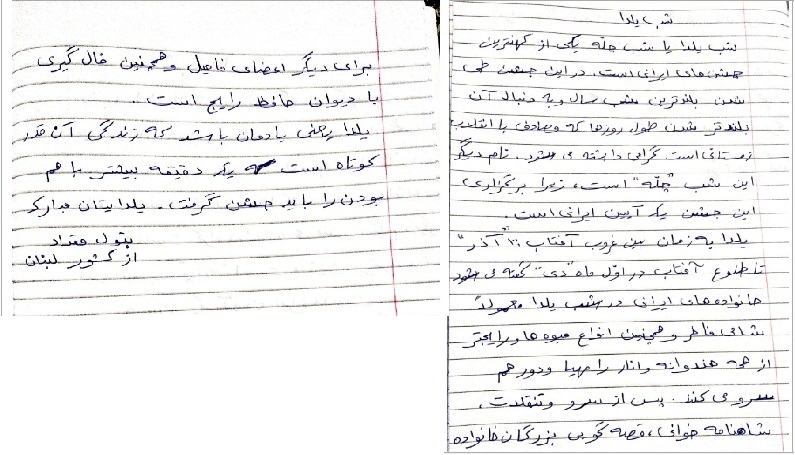 شب یلدا
شب یلدا یا شب چله یکی از کهنترین
جشن‌های ایرانی است. در این جشن طی
شدن بلندترین شب سال و به دنبال آن
بلندتر شدن طول روزها که مصادف با انقلاب
زمستانی است گرامی داشته می شود. نام دیگر
این شب "چلّه" است، زیرا برگزاری
این جشن یک آیین ایرانی است.
یلدا به زمان بین غروب آفتاب ۳۰ "آذر"
تا طلوع آفتاب در اوّل ماه "دی" گفته می شود
خانواده های ایرانی در شب یلدا معمولاً
شامی فاخر و همچنین انواع میوه ها و رایجتر
از همه هندوانه و انار را مهیا و دور هم
سرو می کنند. پس از سرو و تنقلات،
شاهنامه خوانی، قصه گویی بزرگان خانواده
برای دیگر اعضای فامیل و همچنین فال گیری
با دیوان حافظ رایج است.
یلدا یعنی یادمان باشد که زندگی آن قدر
کوتاه است که یک دقیقه بیشتر با هم
بودن را باید جشن گرفت. یلدایتان مبارک
بتول مقداد
از کشور لبنان